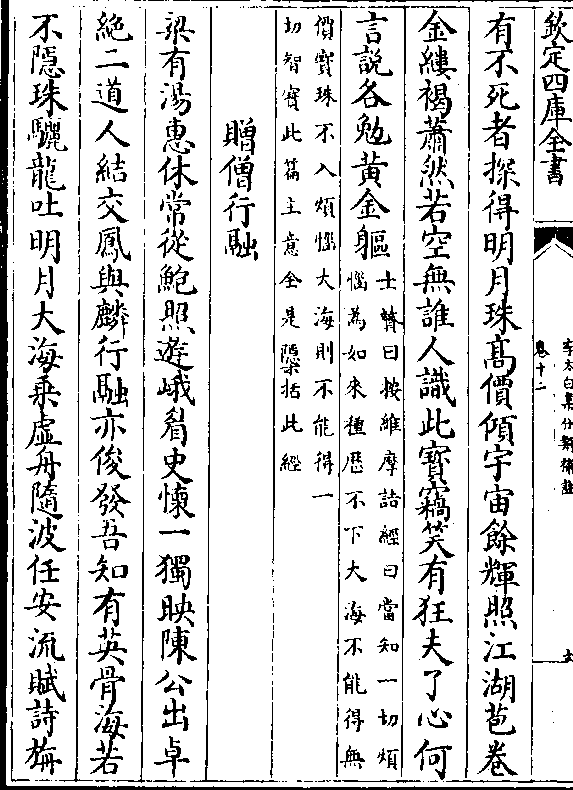 欽定四庫全書
李太白集分類補註
卷十二
有不死者探得明月珠髙價傾宇宙餘輝照江湖苞卷
金縷褐蕭然若空無誰人識此寳竊笑有狂夫了心何
言説各勉黄金軀
士贇曰按維摩詰經曰當知一切煩
惱為如來種歴不下大海不能得無
價寳珠不入煩惱大海則不能得一
切智寳此篇主意全是隱括此經
贈僧行融
梁有湯惠休常從鮑照遊峨眉史懐一獨映陳公出卓
絶二道人結交鳳與麟行融亦俊發吾知有英骨海若
不隱珠驪龍吐明月大海乗虚舟隨波任安流賦詩旃